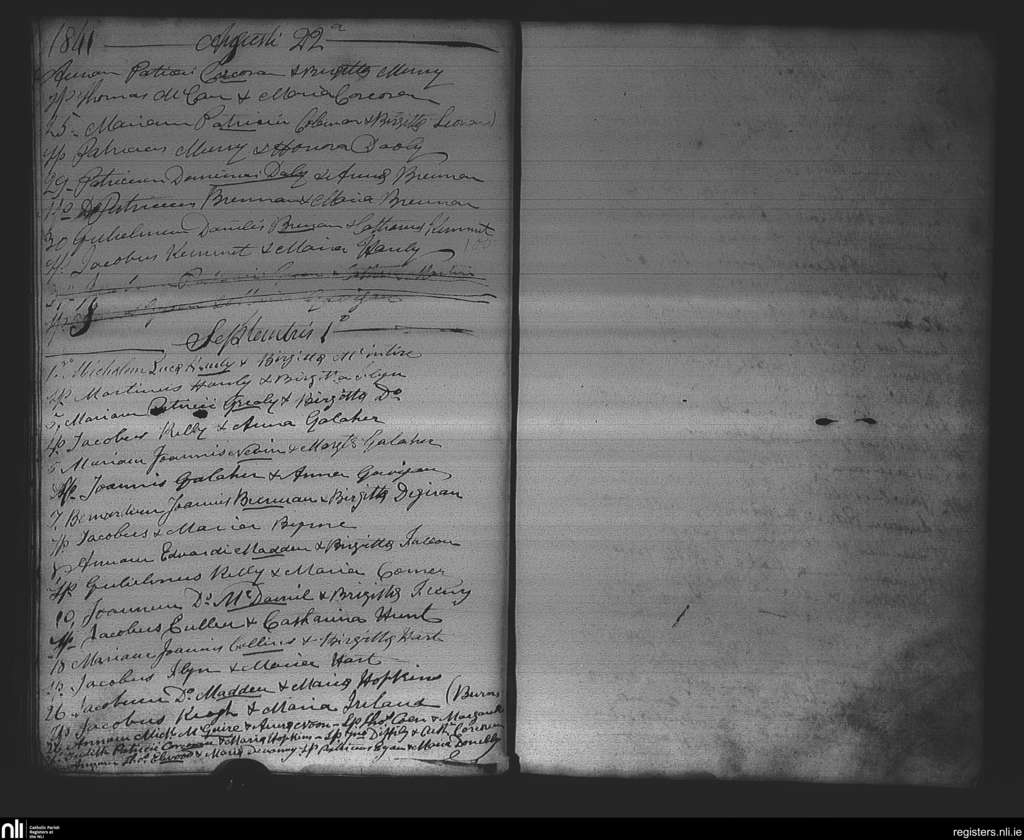 1841 Augusti 22a
Annam Patricii Corcoran & Birgitta Murry
Sp Thomas McCan & Maria Corcoran
25 - Mariam Patricii Coleman & Birgitta Leonard
Sp Patricius Murry & Honora Dooly
29 - Patricium Daly & Anna Brennan
Patricius Brennan & Maria Brennan
30 Gulielmum Danielis & Catharina Kemmet
Sp. Jacobus Kemmet & Maria Hanly
31
Septembris 1a
Nicholum Luca Hanly & Birgitta McIntire
Sp Martinus Hanly & Birgitta Flyn
5, Mariam Patricii Grealy & Birgitta Do
Sp. Jacobus Kelly & Anna Galaher
5 Mariam Joannis Nevin & Margta Galaher
Sp. Joannis Galaher & Anna Gavigan
7. Bernardum Joannis Brennan & Birgitta Dignan
Sp Jacobus & Maria Byrne
8 Annam Edvardi Madden & Birgitta Fallon
Sp Gulielmus Kelly & Maria Comer
10, Joannem Do McDaniel & Brigitta Feeny
Sp. Jacobus Cullen & Catharina Hunt
18 Mariam Joannis Collins & Birgitta Hart
Sp. Jacobus Flyn & Maria Hart
26 Jacobum Do Madden & Maria Hopkins
Sp Jacobus Keogh & Maria Ireland (Burns
26 Annam Mich McGuire & Anna Noon - Sp. Thos & Margarita
Judith Patricii Corcoran & Maria Hopkins - Sp. Diffily & Cath Corcoran
Thos Elwood & Maria Devanny Sp Patricius Egan & Maria Donelly
nli
Catholic Parish
Registers at
the NLI
registers.nli.ie